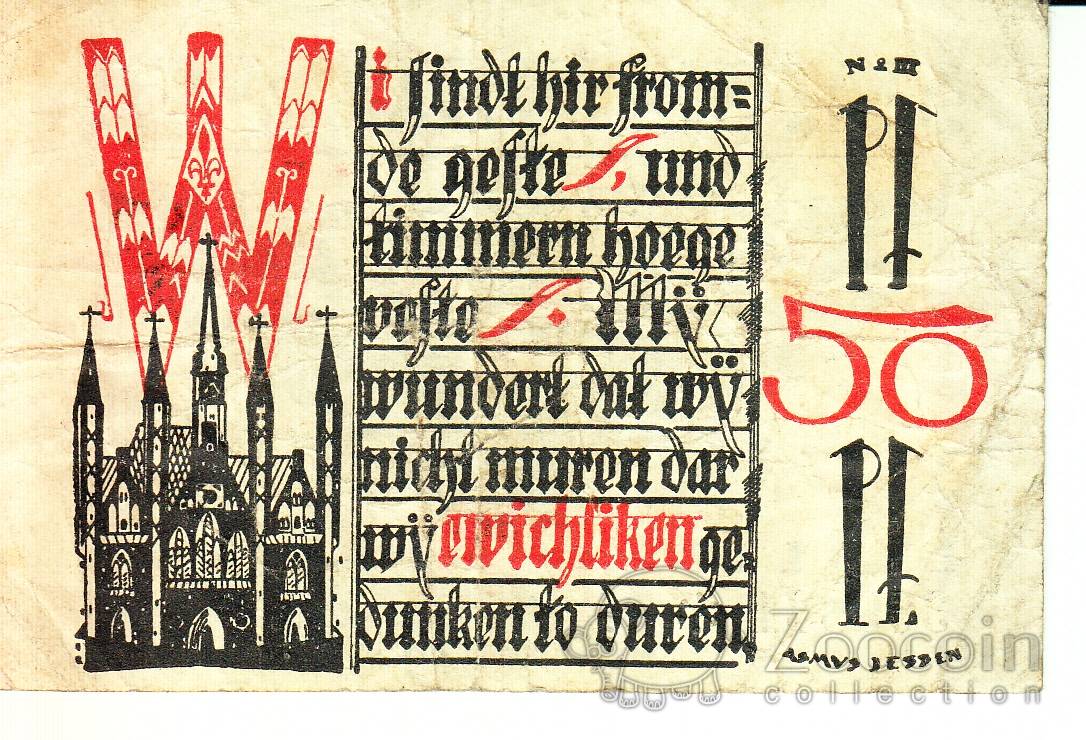 Wi sindt hir from=
de geste, und
timmern hoege
veste. Mÿ
wundert dat wÿ
nicht muren dar
wÿ ewichliken ge-
dunken to duren
N: III
PF
50
PF.
ASMVS JESSEN
Zoocoin
collection